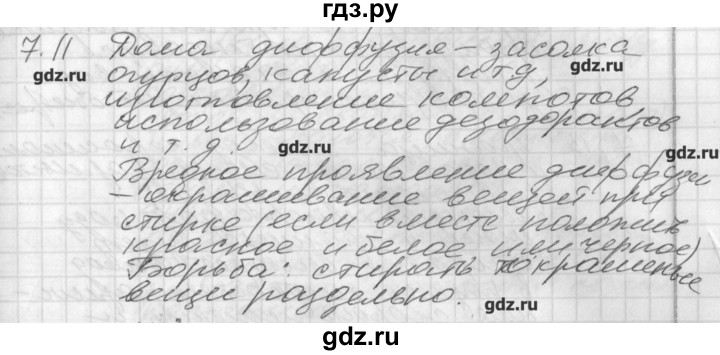 гдз.ру
7.11 Дома диффузия – засолка
огурцов, капусты и т.д,
изготовление компотов,
использование дезодорантов
и т. д.
Вредное проявление диффузии
– окрашивание вещей при
стирке (если вместе положить
красное и белое или черное)
Борьба: стирать покрашеные
вещи раздельно.
gdz.ru
gdz.ru
gdz.ru
gdz.ru
gdz.ru
gdz.ru